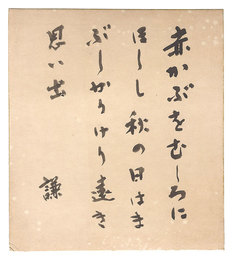 赤かぶをむしろに
ほしし秋の日はま
ぶしかりけり遠き
思い出
謙